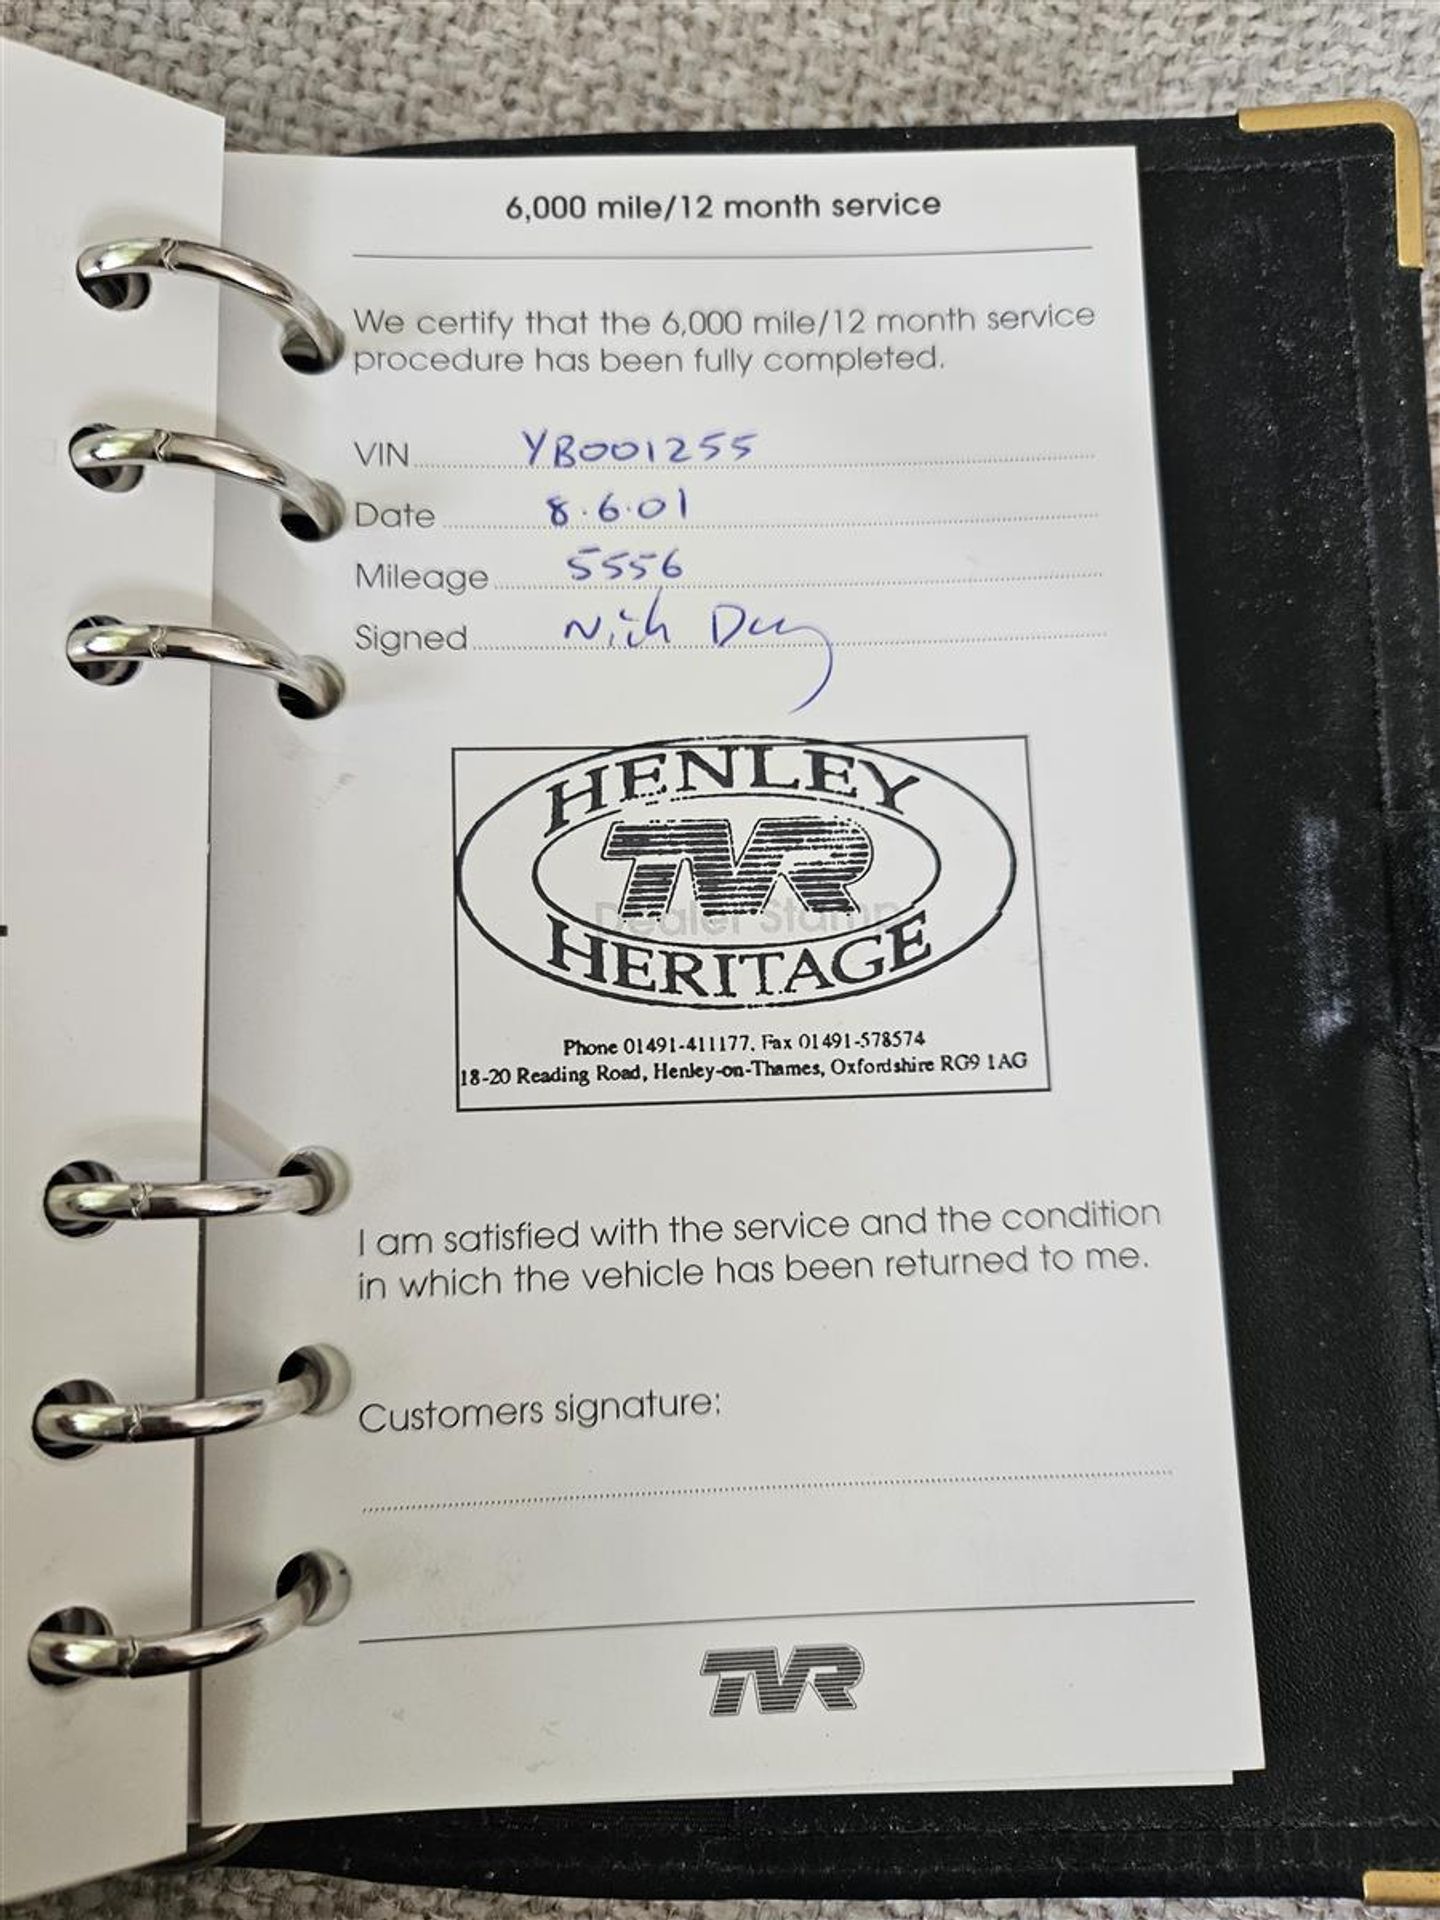 6,000 mile/12 month service
We certify that the 6,000 mile/12 month service
procedure has been fully completed.
VIN YB001255
Date 8.6.01
Mileage 5556
Signed Nick
HENLEY
TVR
Dealer Stamp
HERITAGE
Phone 01491-411177, Fax 01491-578574
18-20 Reading Road, Henley-on-Thames, Oxfordshire RG9 1AG
I am satisfied with the service and the condition
in which the vehicle has been returned to me.
Customers signature:
TVR